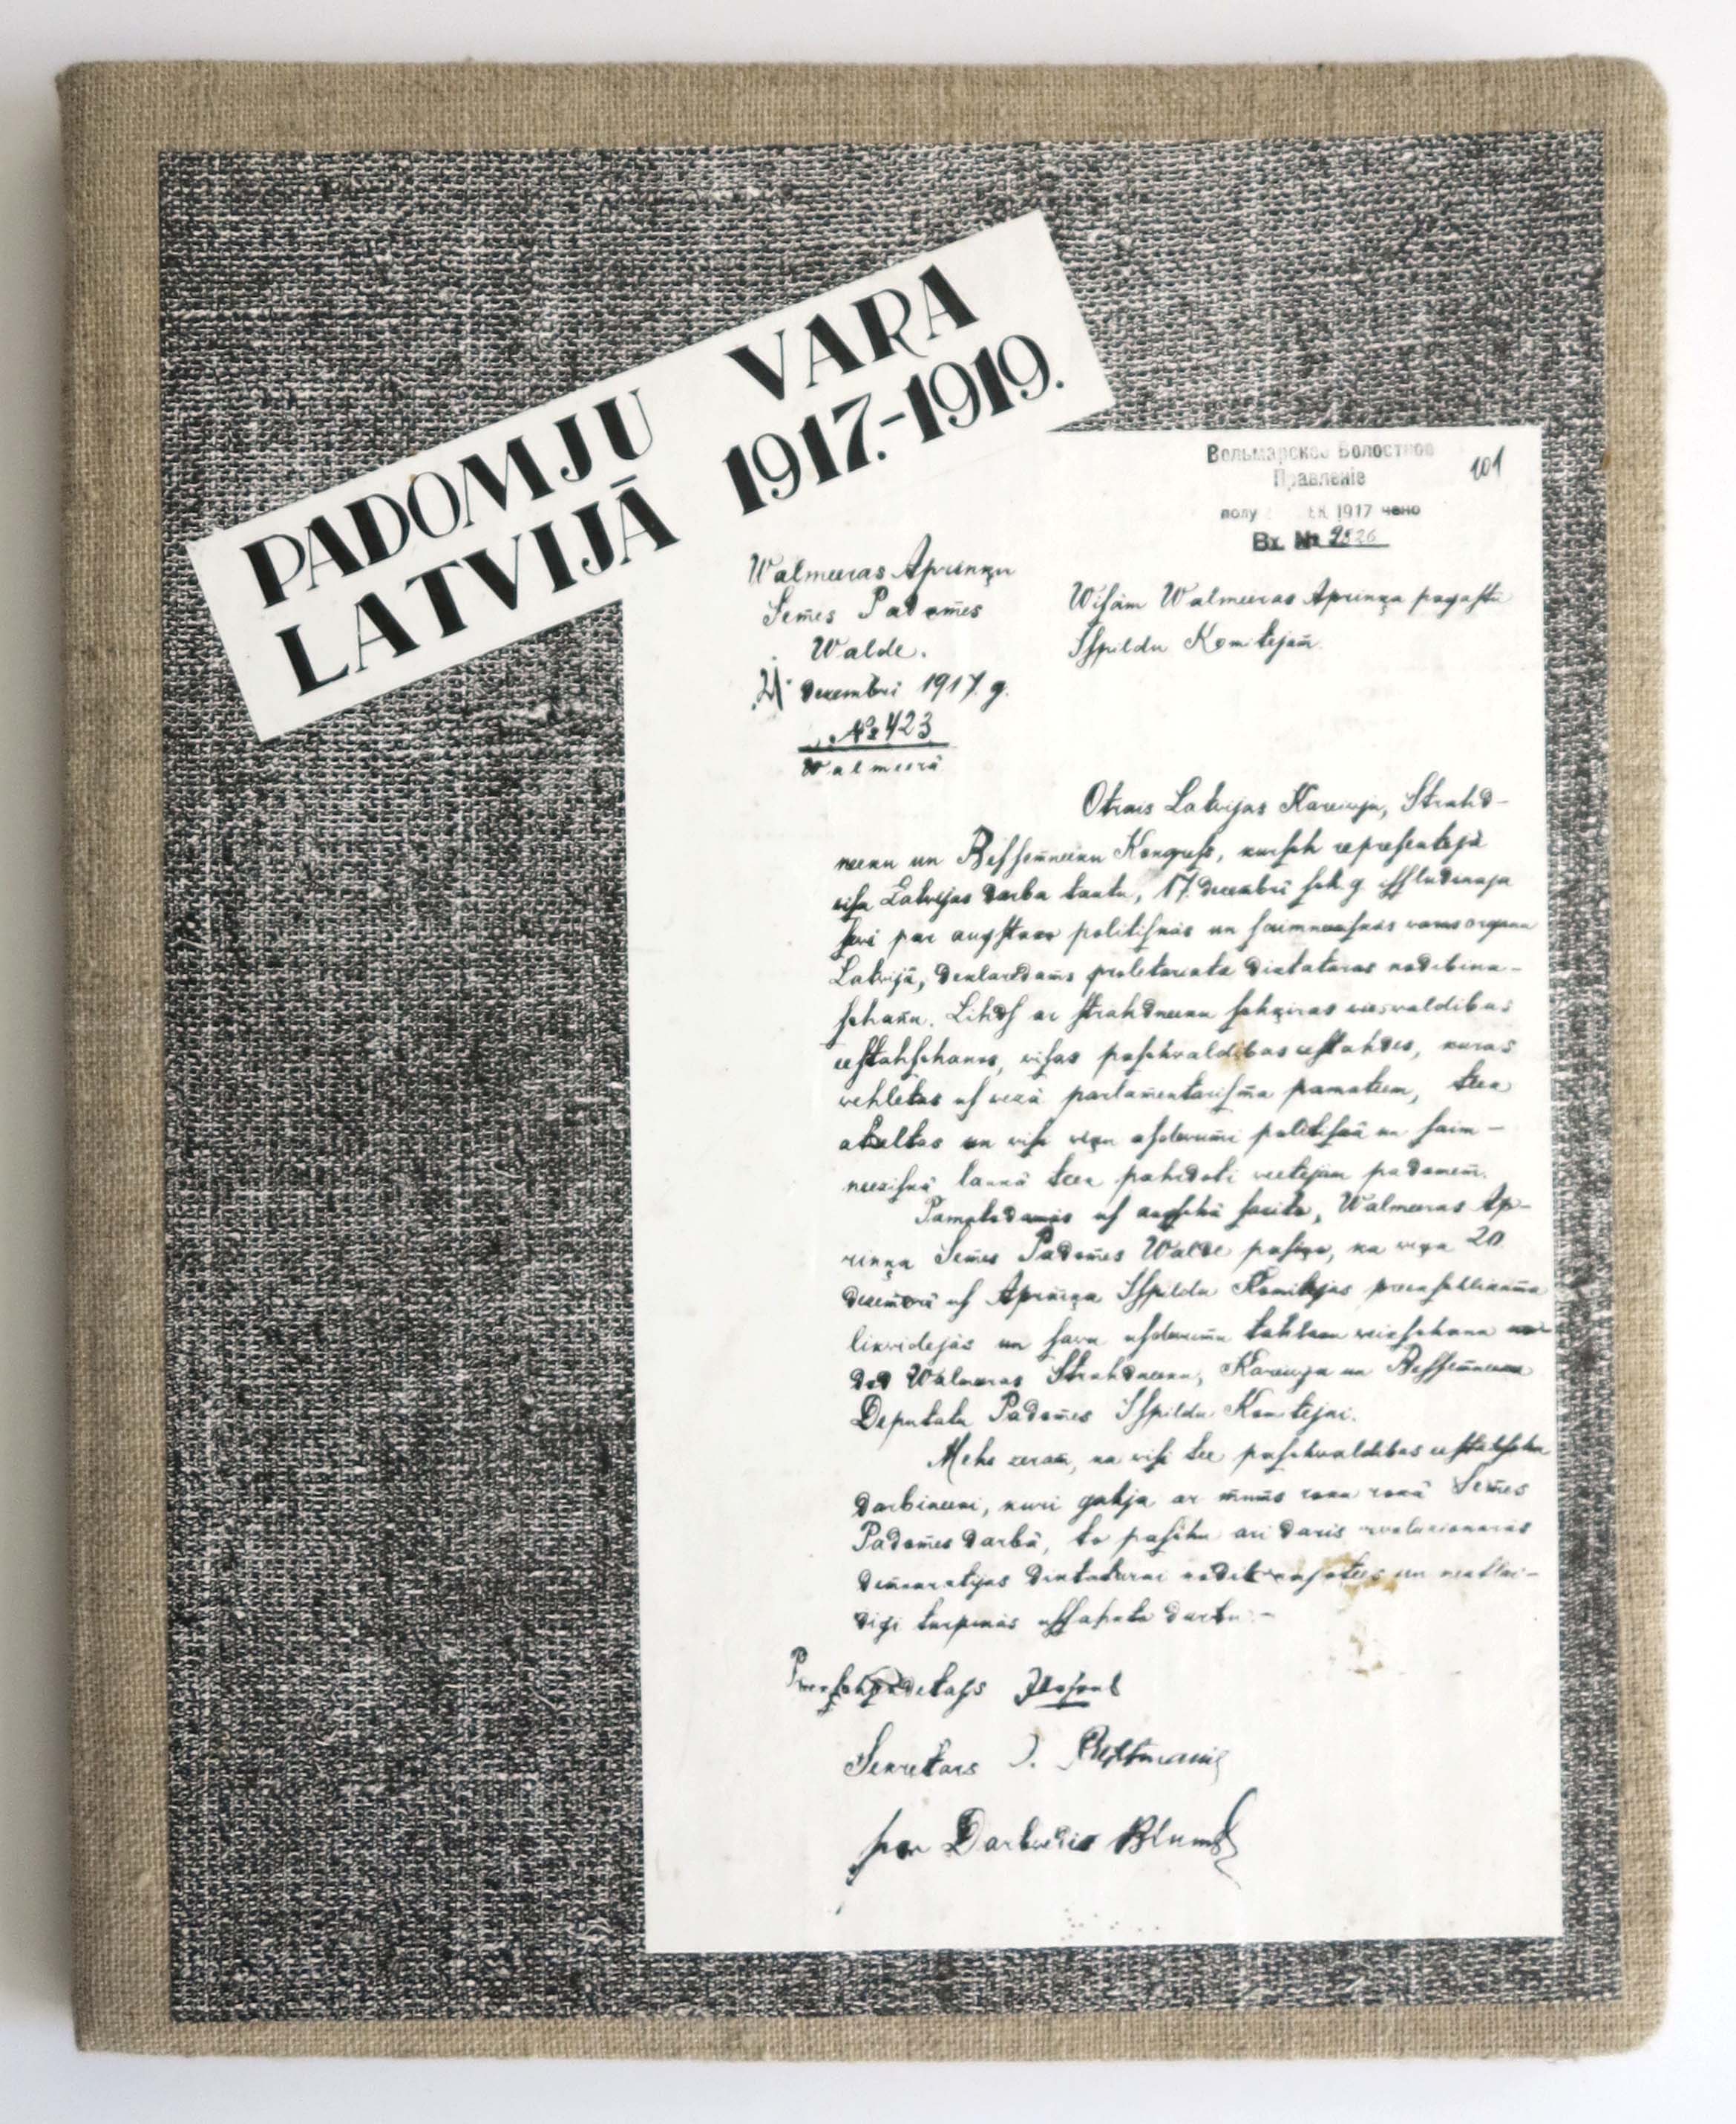 PADOMJU VARA
LATVIJĀ 1917.-1919.
Вольмарское Волостное
Правленіе
101
полу ЕК 1917 чено
Вх. № 2526
Walmeeras Aprinķu
Semes Padomes
Walde.
21. dezembri 1917. g.
№ 423
Walmeerā
Wisām Walmeeras Aprinķa pagastu
Ispildu Komitejam.
Otrais Latwijas Kareiwju, Strahd-
neeku un Bessemneeku Kongress, kursch representeja
wisu Latwijas darba tautu, 17. dezembrī sch. g. issludinaja
sewi par augstako politiskās un saimneeziskās waras organu
Latwijā, deklaredams proletariata diktaturas nodibina-
schanu. Lihds ar strahdneeku schķiras weenwaldibas
eestahschanos, wisas paschwaldibas eestahdes, kuras
wehletas us wezā parlamentarisma pamateem, teek
atzeltas un wisi wiņu usdewumi politiskā un saim-
neeziskā laukā teek pahrdoti weetejam padomem.
Pamatodamās us augschā sazito, Walmeeras Ap-
rinķa Semes Padomes Walde pasiņo, ka wiņa 20.
dezembrī us Aprinķa Ispildu Komitejas preekschlikuma
likwidejās un sawu usdewumu tahlaku weikschanu
dod Walmeras Strahdneeku, Kareiwju un Bessemneeku
Deputatu Padomes Ispildu Komitejai.
Mehs zeram, ka wisi tee paschwaldibas eestahschu
darbineeki, kuri gahja ar mums roku rokā Semes
Padomes darbā, to paschu ari daris rewoluzionaras
demokratijas diktaturai nodibinajotees un neatlai-
digi turpinās ussahkto darbu.-
Preekschsehdetajs
Sekretars J.
par Darbwedis Blums